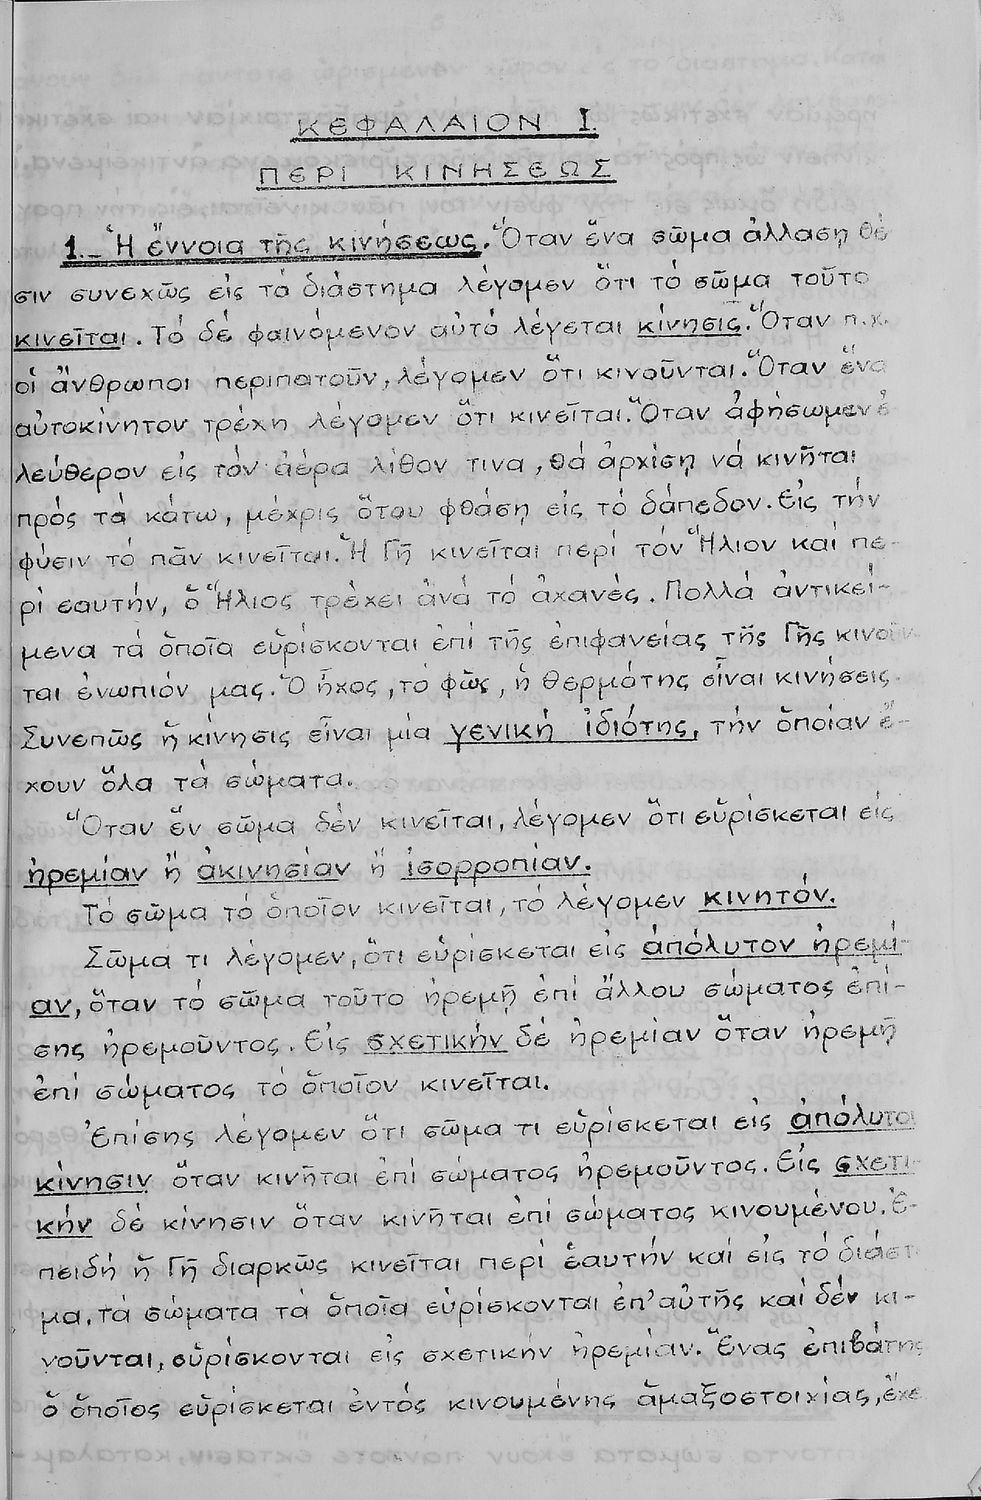 ΚΕΦΑΛΑΙΟΝ Ι.
ΠΕΡΙ ΚΙΝΗΣΕΩΣ
1.- Ἡ ἔννοια τῆς κινήσεως. Ὅταν ἕνα σῶμα ἀλλάση θέ
σιν συνεχῶς εἰς τό διάστημα λέγομεν ὅτι τό σῶμα τοῦτο
κινεῖται. Τό δέ φαινόμενον αὐτό λέγεται κίνησις. Ὅταν π.χ.
οἱ ἄνθρωποι περιπατοῦν, λέγομεν ὅτι κινοῦνται. Ὅταν ἕνα
αὐτοκίνητον τρέχη λέγομεν ὅτι κινεῖται. Ὅταν ἀφήσωμεν ἐ
λεύθερον εἰς τόν ἀέρα λίθον τινα, θά ἀρχίση νά κινῆται
πρός τά κάτω, μέχρις ὅτου φθάση εἰς τό δάπεδον. Εἰς τήν
φύσιν τό πᾶν κινεῖται. Ἡ Γῆ κινεῖται περί τόν Ἥλιον καί πε-
ρί εαυτήν, ὁ Ἥλιος τρέχει ἀνά τό ἀχανές. Πολλά ἀντικεί-
μενα τά ὁποῖα εὑρίσκονται ἐπί τῆς ἐπιφανείας τῆς Γῆς κινοῦν
ται ἐνωπιόν μας. Ὁ ἦχος, τό φῶς, ἡ θερμότης εἶναι κινήσεις.
Συνεπῶς ἡ κίνησις εἶναι μία γενική ἰδιότης, τήν ὁποίαν ἔ-
χουν ὅλα τά σώματα.
Ὅταν ἕν σῶμα δέν κινεῖται, λέγομεν ὅτι εὑρίσκεται εἰς
ἠρεμίαν ἤ ἀκινησίαν ἤ ἰσορροπίαν.
Τό σῶμα τό ὁποῖον κινεῖται, τό λέγομεν κινητόν.
Σῶμα τι λέγομεν, ὅτι εὑρίσκεται εἰς ἀπόλυτον ἠρεμί-
αν, ὅταν τό σῶμα τοῦτο ἠρεμῇ ἐπί ἄλλου σώματος ἐπί-
σης ἠρεμοῦντος. Εἰς σχετικήν δέ ἠρεμίαν ὅταν ἠρεμῇ
ἐπί σώματος τό ὁποῖον κινεῖται.
Ἐπίσης λέγομεν ὅτι σῶμα τι εὑρίσκεται εἰς ἀπόλυτον
κίνησιν ὅταν κινῆται ἐπί σώματος ἠρεμοῦντος. Εἰς σχετι-
κήν δέ κίνησιν ὅταν κινῆται ἐπί σώματος κινουμένου. Ἐ-
πειδή ἡ Γῆ διαρκῶς κινεῖται περί ἑαυτήν καί εἰς τό διάστη
μα, τά σώματα τά ὁποῖα εὑρίσκονται ἐπ' αὐτῆς καί δέν κι-
νοῦνται, εὑρίσκονται εἰς σχετικήν ἠρεμίαν. Ἕνας ἐπιβάτης
ὁ ὁποῖος εὑρίσκεται ἐντός κινουμένης ἁμαξοστοιχίας, ἔχε